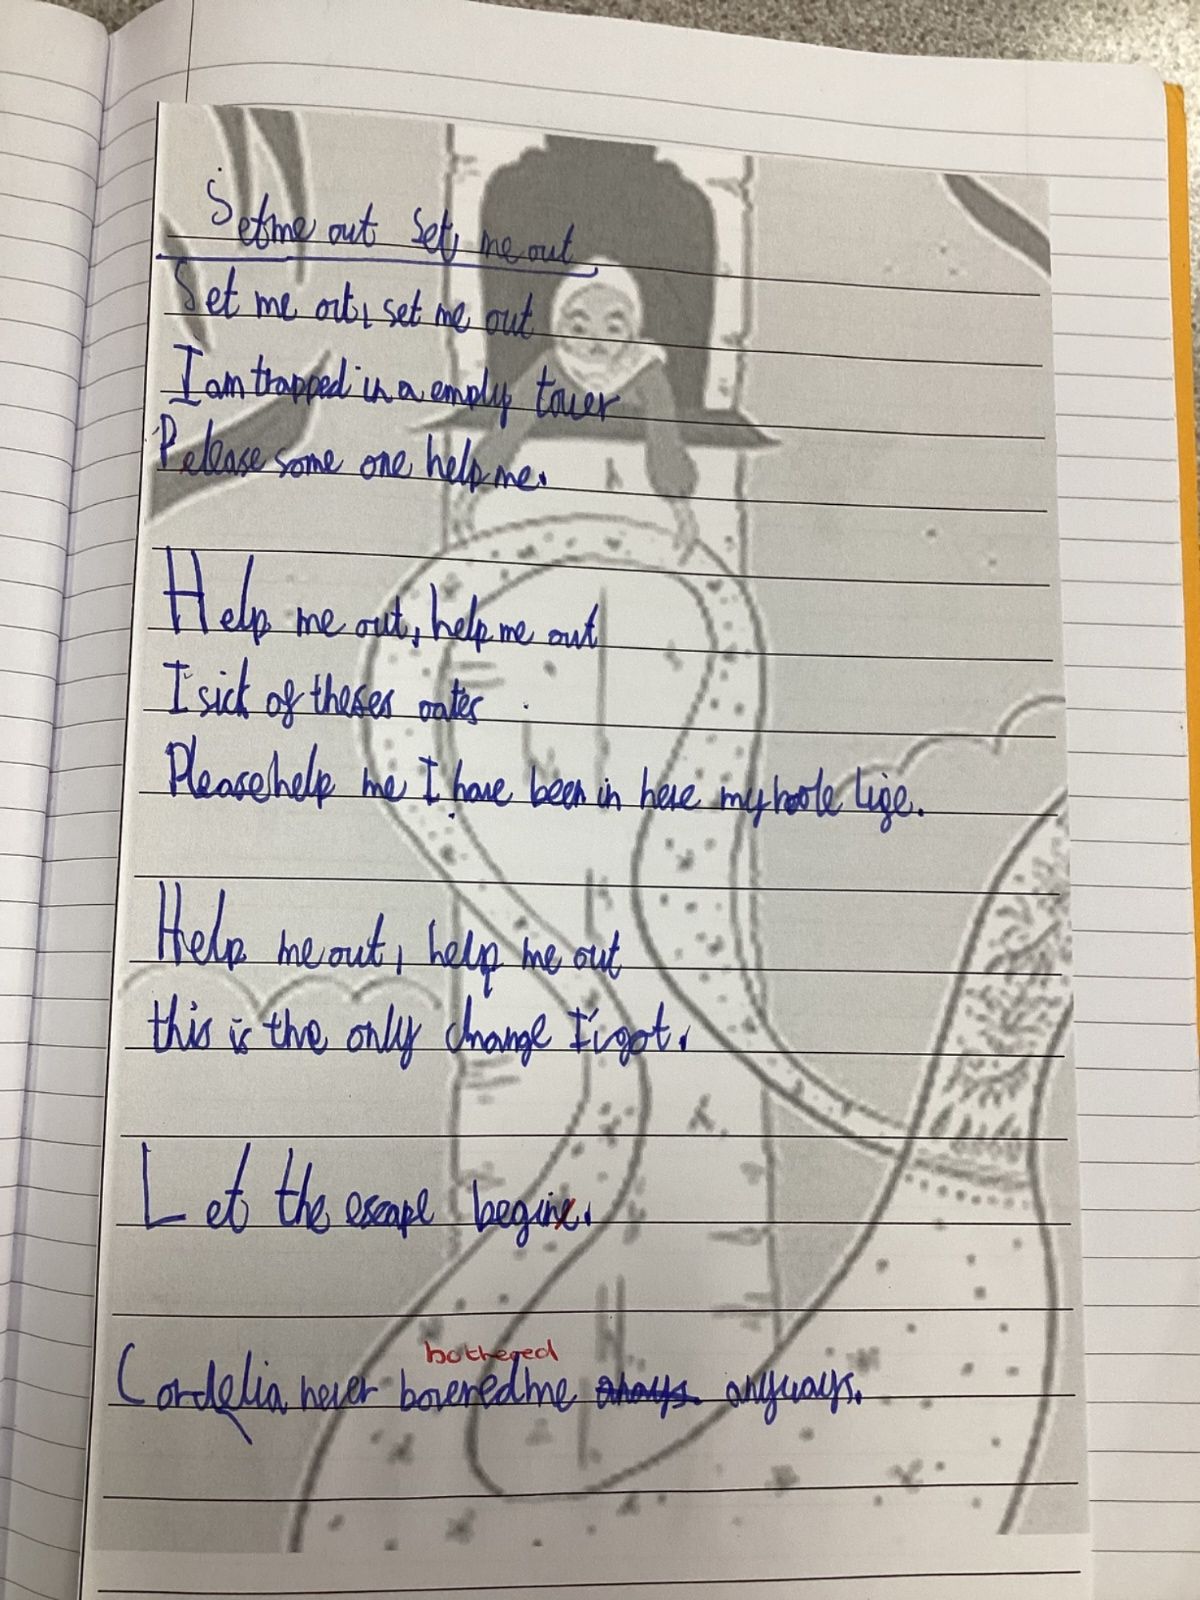 Set me out Set, me out
Set me out, set me out
I am trapped in a empty tower
Pelease some one help me.
Help me out, help me out
I sick of theses oates
Please help me I have been in here my hoole lige.
Help me out, help me out
this is the only change I'v got.
Let the escape begine.
bothered
Cordelia never bovered me anyways.